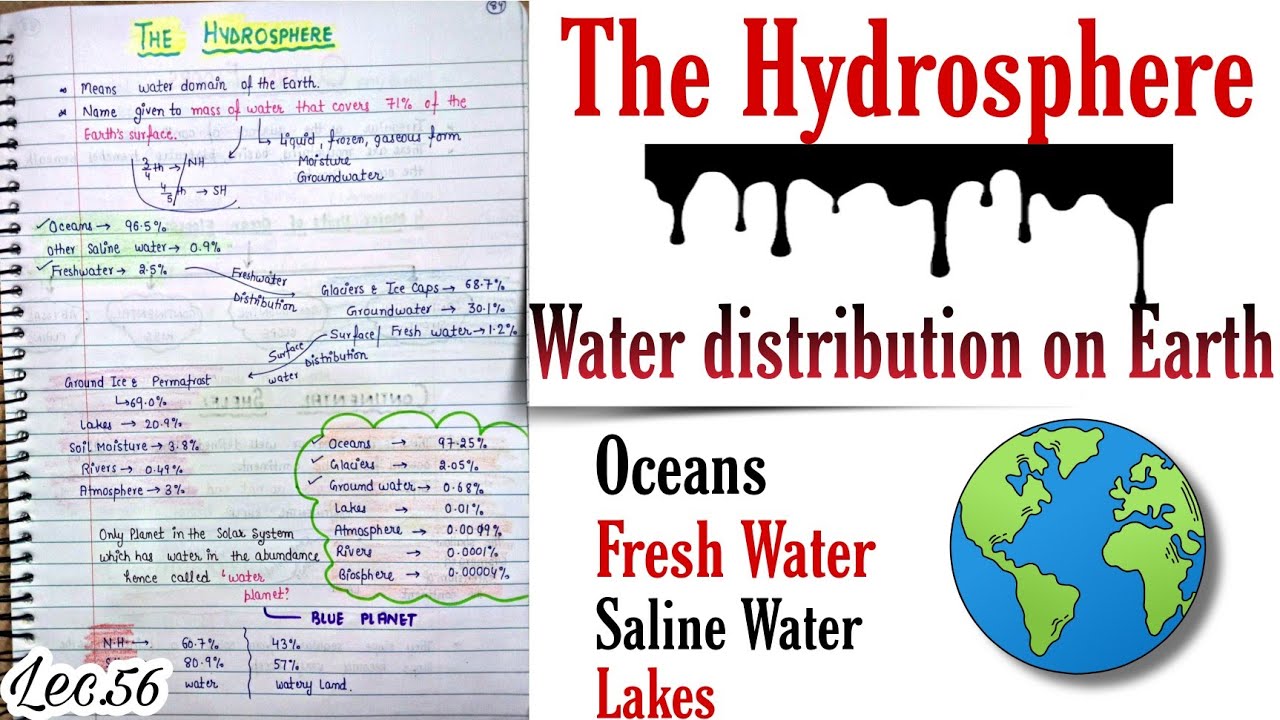 84
THE HYDROSPHERE
Means water domain of the Earth.
Name given to mass of water that covers 71% of the
Earth's surface.
→ Liquid, frozen, gaseous form
Moisture
Groundwater
3/4 th → NH
4/5 th → SH
✓ Oceans → 96.5%
other Saline water → 0.9%
✓ Freshwater → 2.5%
Freshwater
Distribution
Glaciers & Ice Caps → 68.7%
Groundwater → 30.1%
Surface/ Fresh water → 1.2%
Surface
water
Distribution
Ground Ice & Permafrost
↳ 69.0%
Lakes → 20.9%
Soil Moisture → 3.8%
Rivers → 0.49%
Atmosphere → 3%
✓ Oceans → 97.25%
✓ Glaciers → 2.05%
✓ Ground water → 0.68%
Lakes → 0.01%
Atmosphere → 0.0019%
Rivers → 0.0001%
Biosphere → 0.00004%
Only Planet in the Solar System
which has water in the abundance
hence called 'water
planet'
BLUE PLANET
N.H → 60.7% 43%
80.9% 57%
water watery land.
Lec.56
The Hydrosphere
Water distribution on Earth
Oceans
Fresh Water
Saline Water
Lakes